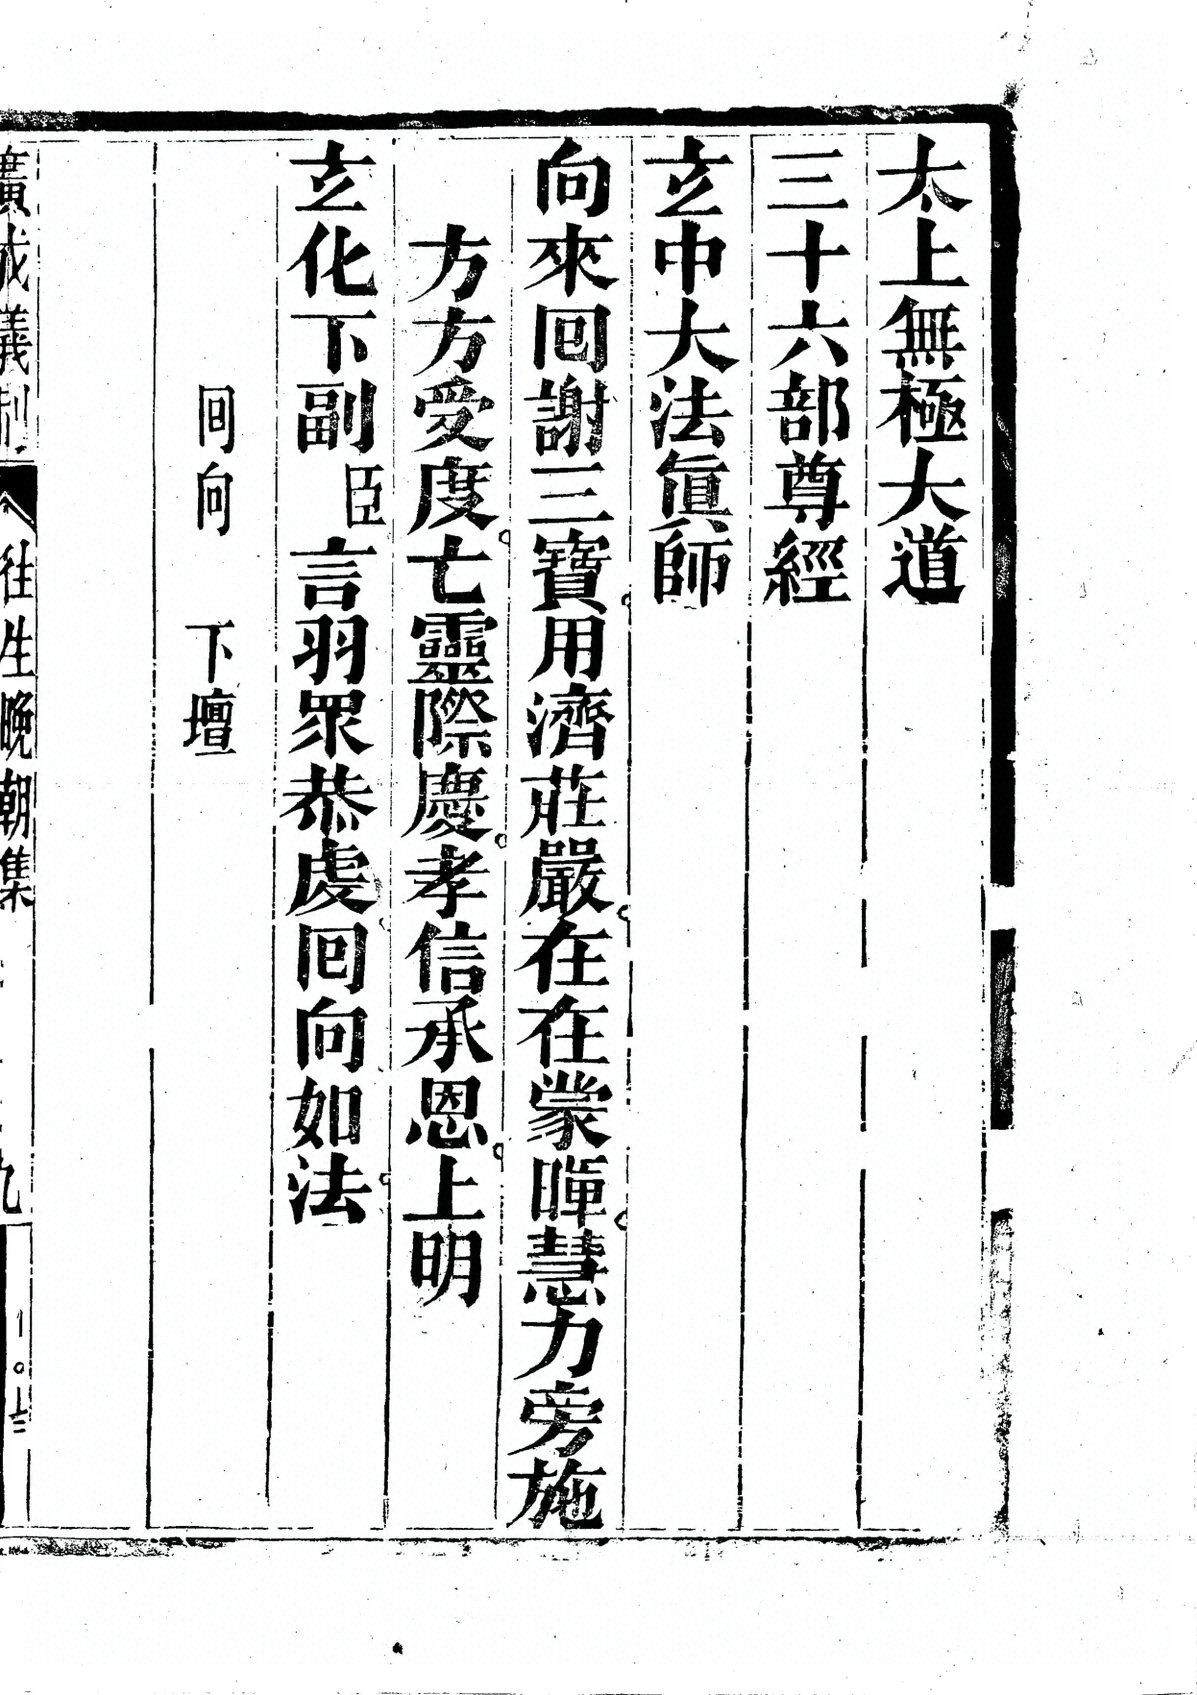 太上無極大道
三十六部尊經
玄中大法眞師
向來回謝三寶用濟莊嚴在在蒙暉慧力旁施
方方受度亡靈際慶孝信承恩上明
玄化下副臣言羽眾恭虔回向如法
回向 下壇
廣成儀制 往生晚朝集 九